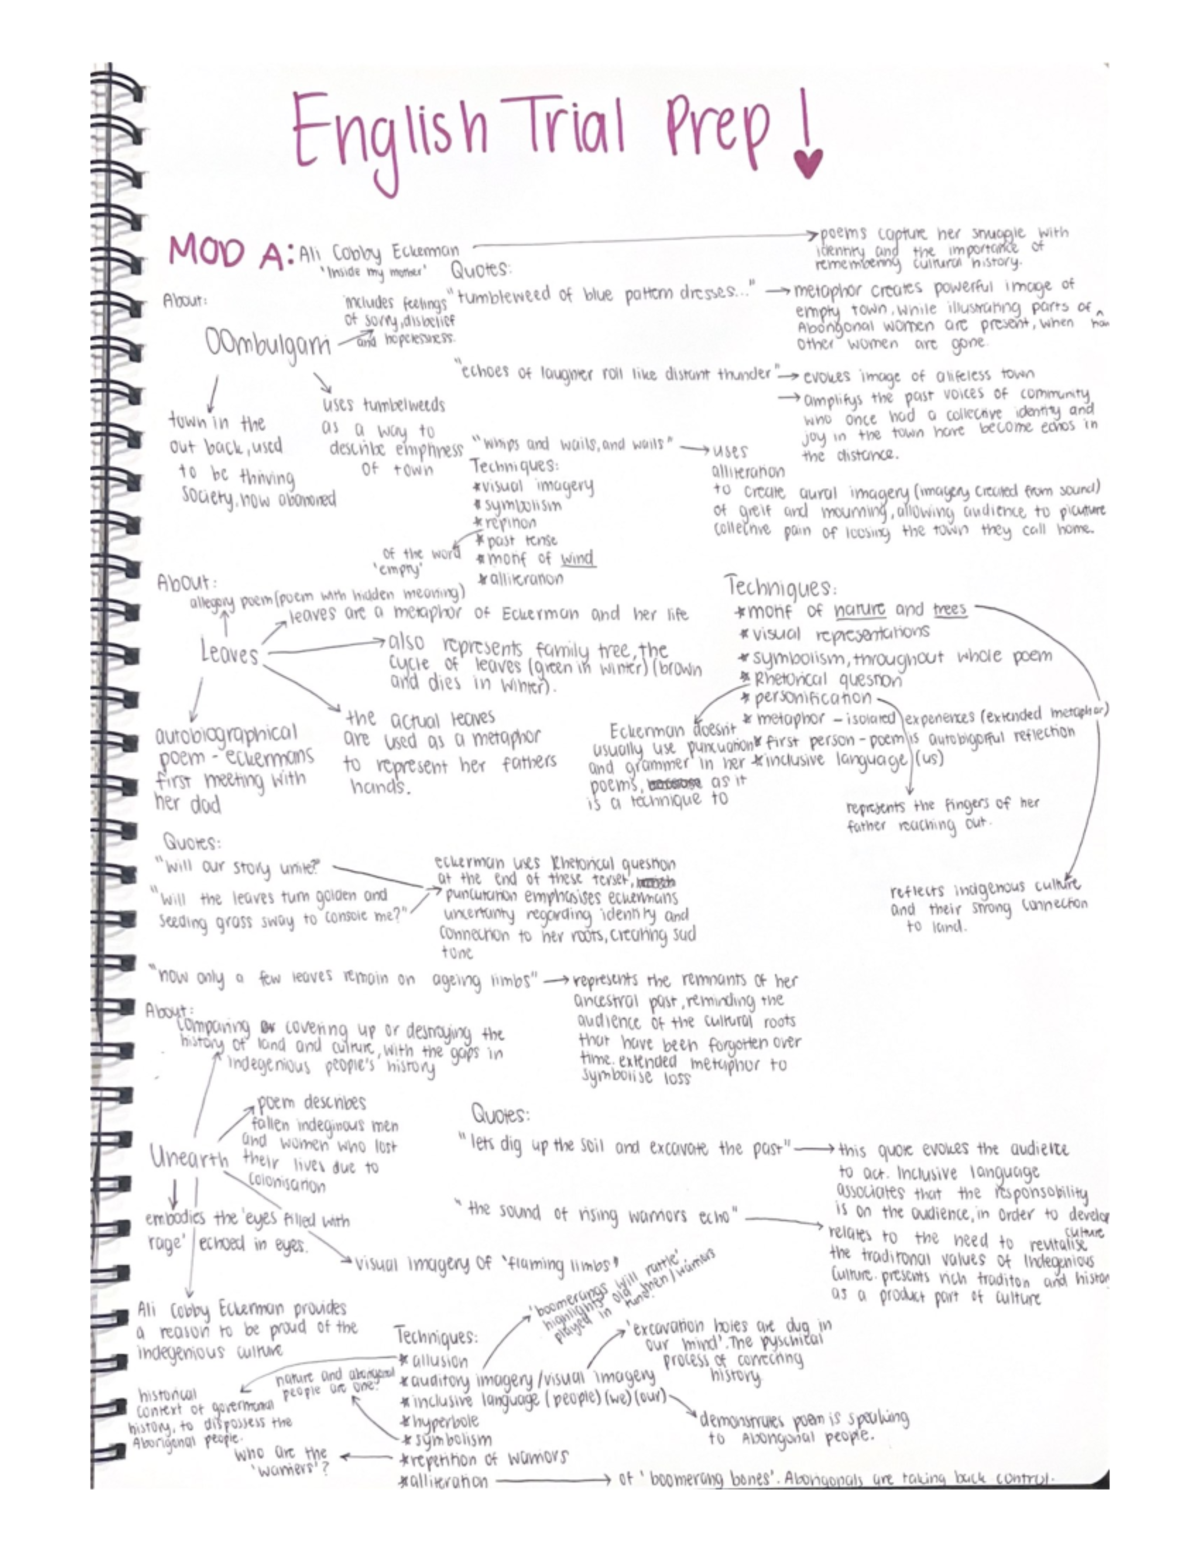 English Trial Prep!
MOD A: Ali Cobby Eckerman
'Inside my mother'
poems capture her snuggle with
identity and the importance of
remembering cultural history.
Quotes:
About:
OOmbulgarri
includes feelings
of sorry, disbelief
and hopelessness.
town in the
out back, used
to be thriving
society, now abonored
uses tumbelweeds
as a way to
describe emptness
of town
"tumbleweed of blue pattern dresses..."
metaphor creates powerful image of
empty town, while illustrating parts of
Aborigonal women are present, when
other women are gone.
"echoes of laughter roll like distant thunder"
evokes image of a lifeless town
amplifys the past voices of community
who once had a collective identity and
joy in the town have become echos in
the distance.
"whips and wails, and wails"
uses
alliteration
to create aural imagery (imagery created from sound)
of greif and mourning, allowing audience to picuture
collective pain of loosing the town they call home.
Techniques:
*visual imagery
*symbolism
*repition
*past tense
*motif of wind
*alliteration
of the word
'empty'
About:
allegory poem (poem with hidden meaning)
Leaves
leaves are a metaphor of Eckerman and her life
also represents family tree, the
cycle of leaves (green in winter) (brown
and dies in winter).
the actual leaves
are used as a metaphor
to represent her fathers
hands.
autobiographical
poem - eckermans
first meeting with
her dad
Techniques:
*motif of nature and trees
*visual representations
*symbolism, throughout whole poem
*Rhetorical question
*personification
*metaphor - isolated experiences (extended metaphor)
*first person - poem is autobigorful reflection
*inclusive language (us)
Eckerman doesnt
usually use puncuation
and grammer in her
poems, as it
is a technique to
represents the fingers of her
father reaching out.
reflects indigenous culture
and their strong connection
to land.
Quotes:
"Will our story unite?"
"Will the leaves turn golden and
seeding grass sway to console me?"
eckerman uses Rhetorical question
at the end of these terset,
puncutation emphasises eckermans
uncertinty regarding identity and
connection to her roots, creating sad
tone
"now only a few leaves remain on ageing limbs"
represents the remnants of her
ancestral past, reminding the
audience of the cultural roots
that have been forgotten over
time. extended metaphor to
symbolise loss
About:
comparing covering up or destroying the
history of land and culture, with the gaps in
indegenious people's history
Unearth
poem describes
fallen indeginous men
and women who lost
their lives due to
colonisation
embodies the 'eyes filled with
rage' echoed in eyes.
visual imagery of 'flaming limbs'
Ali Cobby Eckerman provides
a reason to be proud of the
indegenious culture
Quotes:
"lets dig up the soil and excavate the past"
this quote evokes the audience
to act. Inclusive language
associates that the responsobility
is on the audience, in order to develop
culture
"the sound of rising warriors echo"
relates to the need to revitalise
the traditonal values of Indegenious
culture. presents rich traditon and histor
as a product part of culture
Techniques:
*allusion
*auditory imagery/visual imagery
*inclusive language (people) (we) (our)
*hyperbole
*symbolism
*repetition of warriors
*alliteration
'boomerangs will rattle'
highlights old men/warriors
played in tune.
'excavation holes are dug in
our mind'. The pyschical
process of correcting
history
demonstrates poem is speaking
to Aborigonal people.
nature and aborigonal
people are one.
historical
context of govermental
history, to disposess the
Aborigonal people.
who are the
'warriers'?
of 'boomerang bones'. Aborigonals are taking back control.